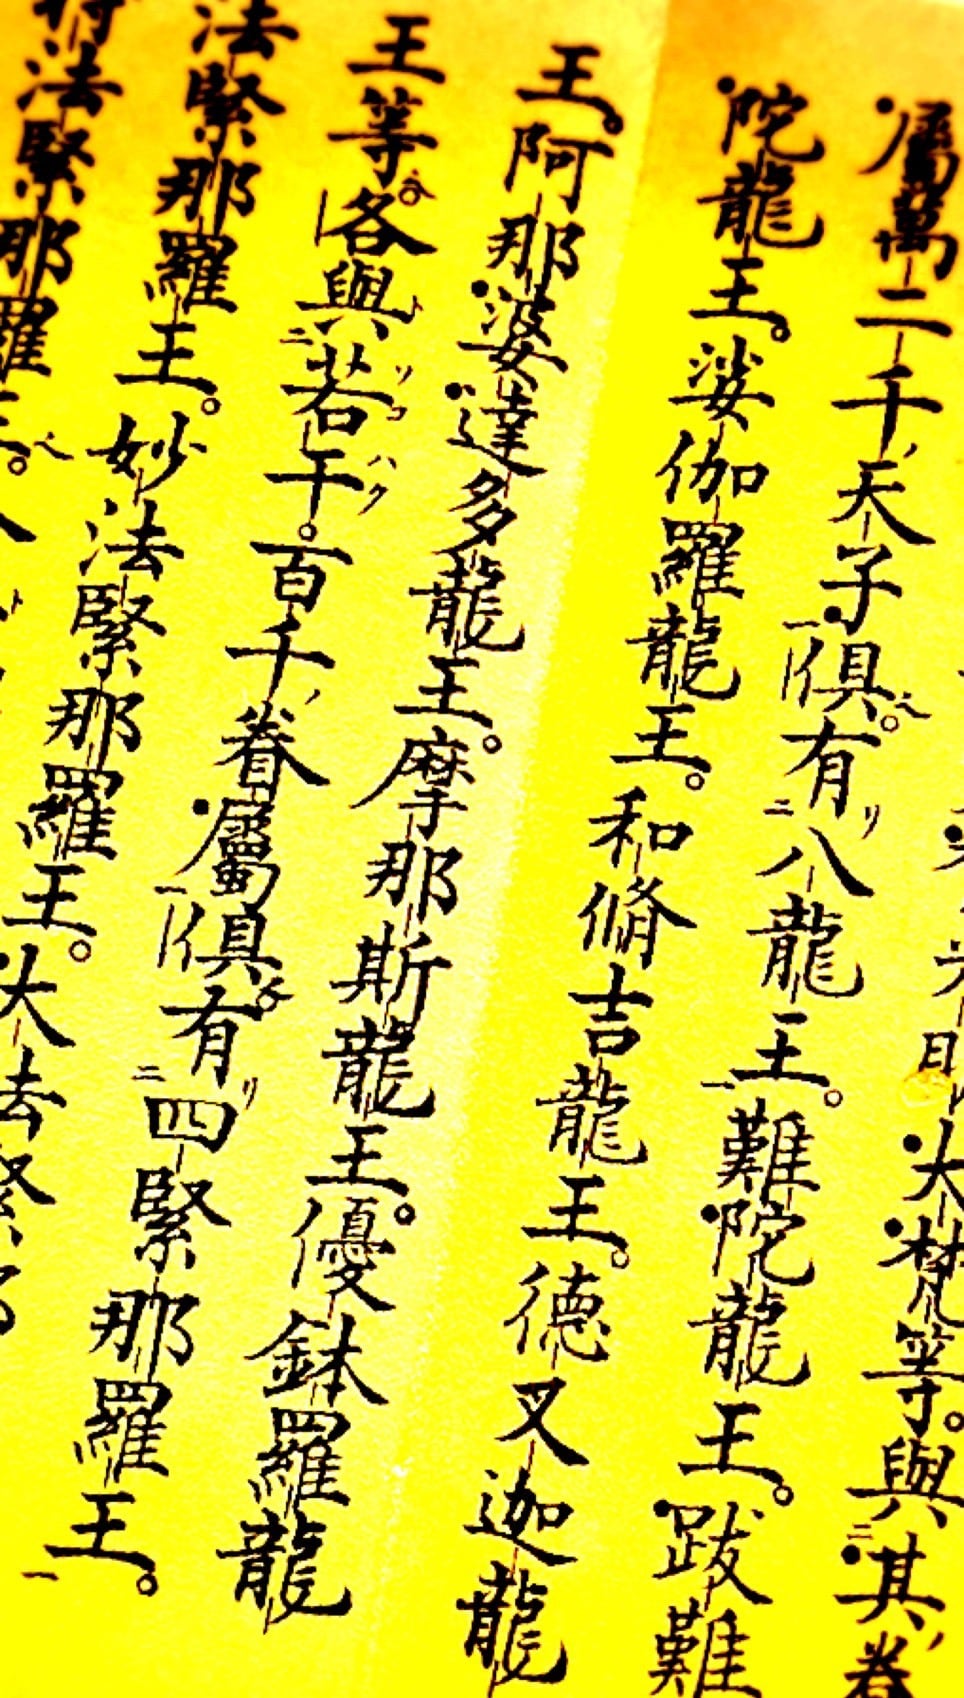 光明大梵等。與其眷
屬萬二千天子俱。有八龍王。難陀龍王。跋難
陀龍王。娑伽羅龍王。和脩吉龍王。德叉迦龍
王。阿那婆達多龍王。摩那斯龍王。優鉢羅龍
王等。各與若干。百千眷屬俱。有四緊那羅王。
法緊那羅王。妙法緊那羅王。大法緊那
持法緊那羅王。